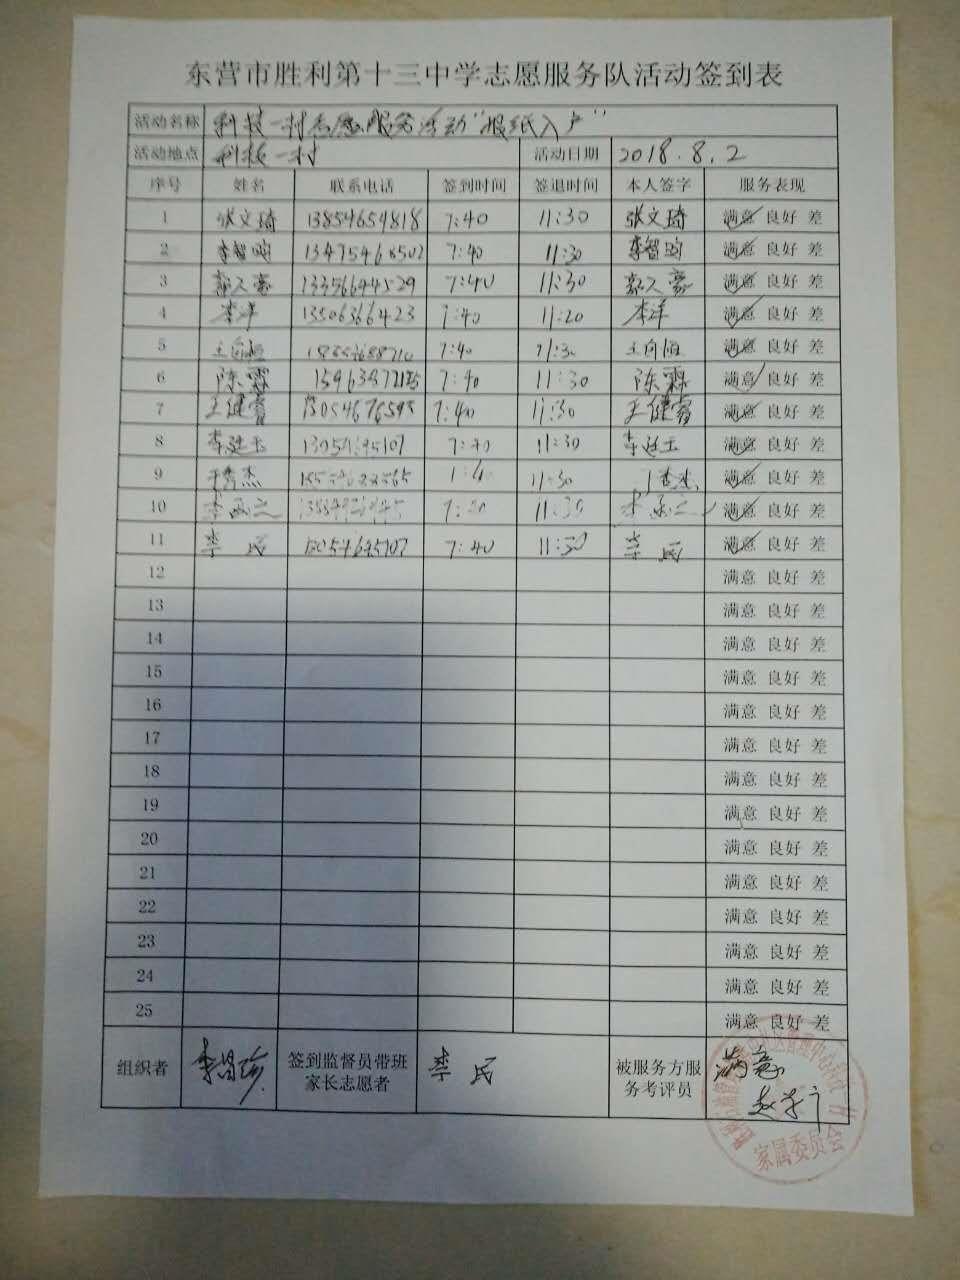 东营市胜利第十三中学志愿服务队活动签到表
活动名称 科技一村志愿服务活动"报纸入户"
活动地点 科技一村 活动日期 2018.8.2
序号 姓名 联系电话 签到时间 签退时间 本人签字 服务表现
1 张文琦 13854654818 7:40 11:30 张文琦 满意 良好 差
2 李智昀 13475468502 7:40 11:30 李智昀 满意 良好 差
3 郭又豪 13356644529 7:40 11:30 郭又豪 满意 良好 差
4 李洋 13506366423 7:40 11:20 李洋 满意 良好 差
5 7:40 11:30 满意 良好 差
6 陈霖 7:40 11:30 陈霖 满意 良好 差
7 王健睿 7:40 11:30 王健睿 满意 良好 差
8 李延玉 7:40 11:30 李延玉 满意 良好 差
9 11:30 满意 良好 差
10 11:30 满意 良好 差
11 李民 7:40 11:30 李民 满意 良好 差
12 满意 良好 差
13 满意 良好 差
14 满意 良好 差
15 满意 良好 差
16 满意 良好 差
17 满意 良好 差
18 满意 良好 差
19 满意 良好 差
20 满意 良好 差
21 满意 良好 差
22 满意 良好 差
23 满意 良好 差
24 满意 良好 差
25 满意 良好 差
组织者 签到监督员带班 李民 被服务方服 满意
家长志愿者 务考评员
家属委员会